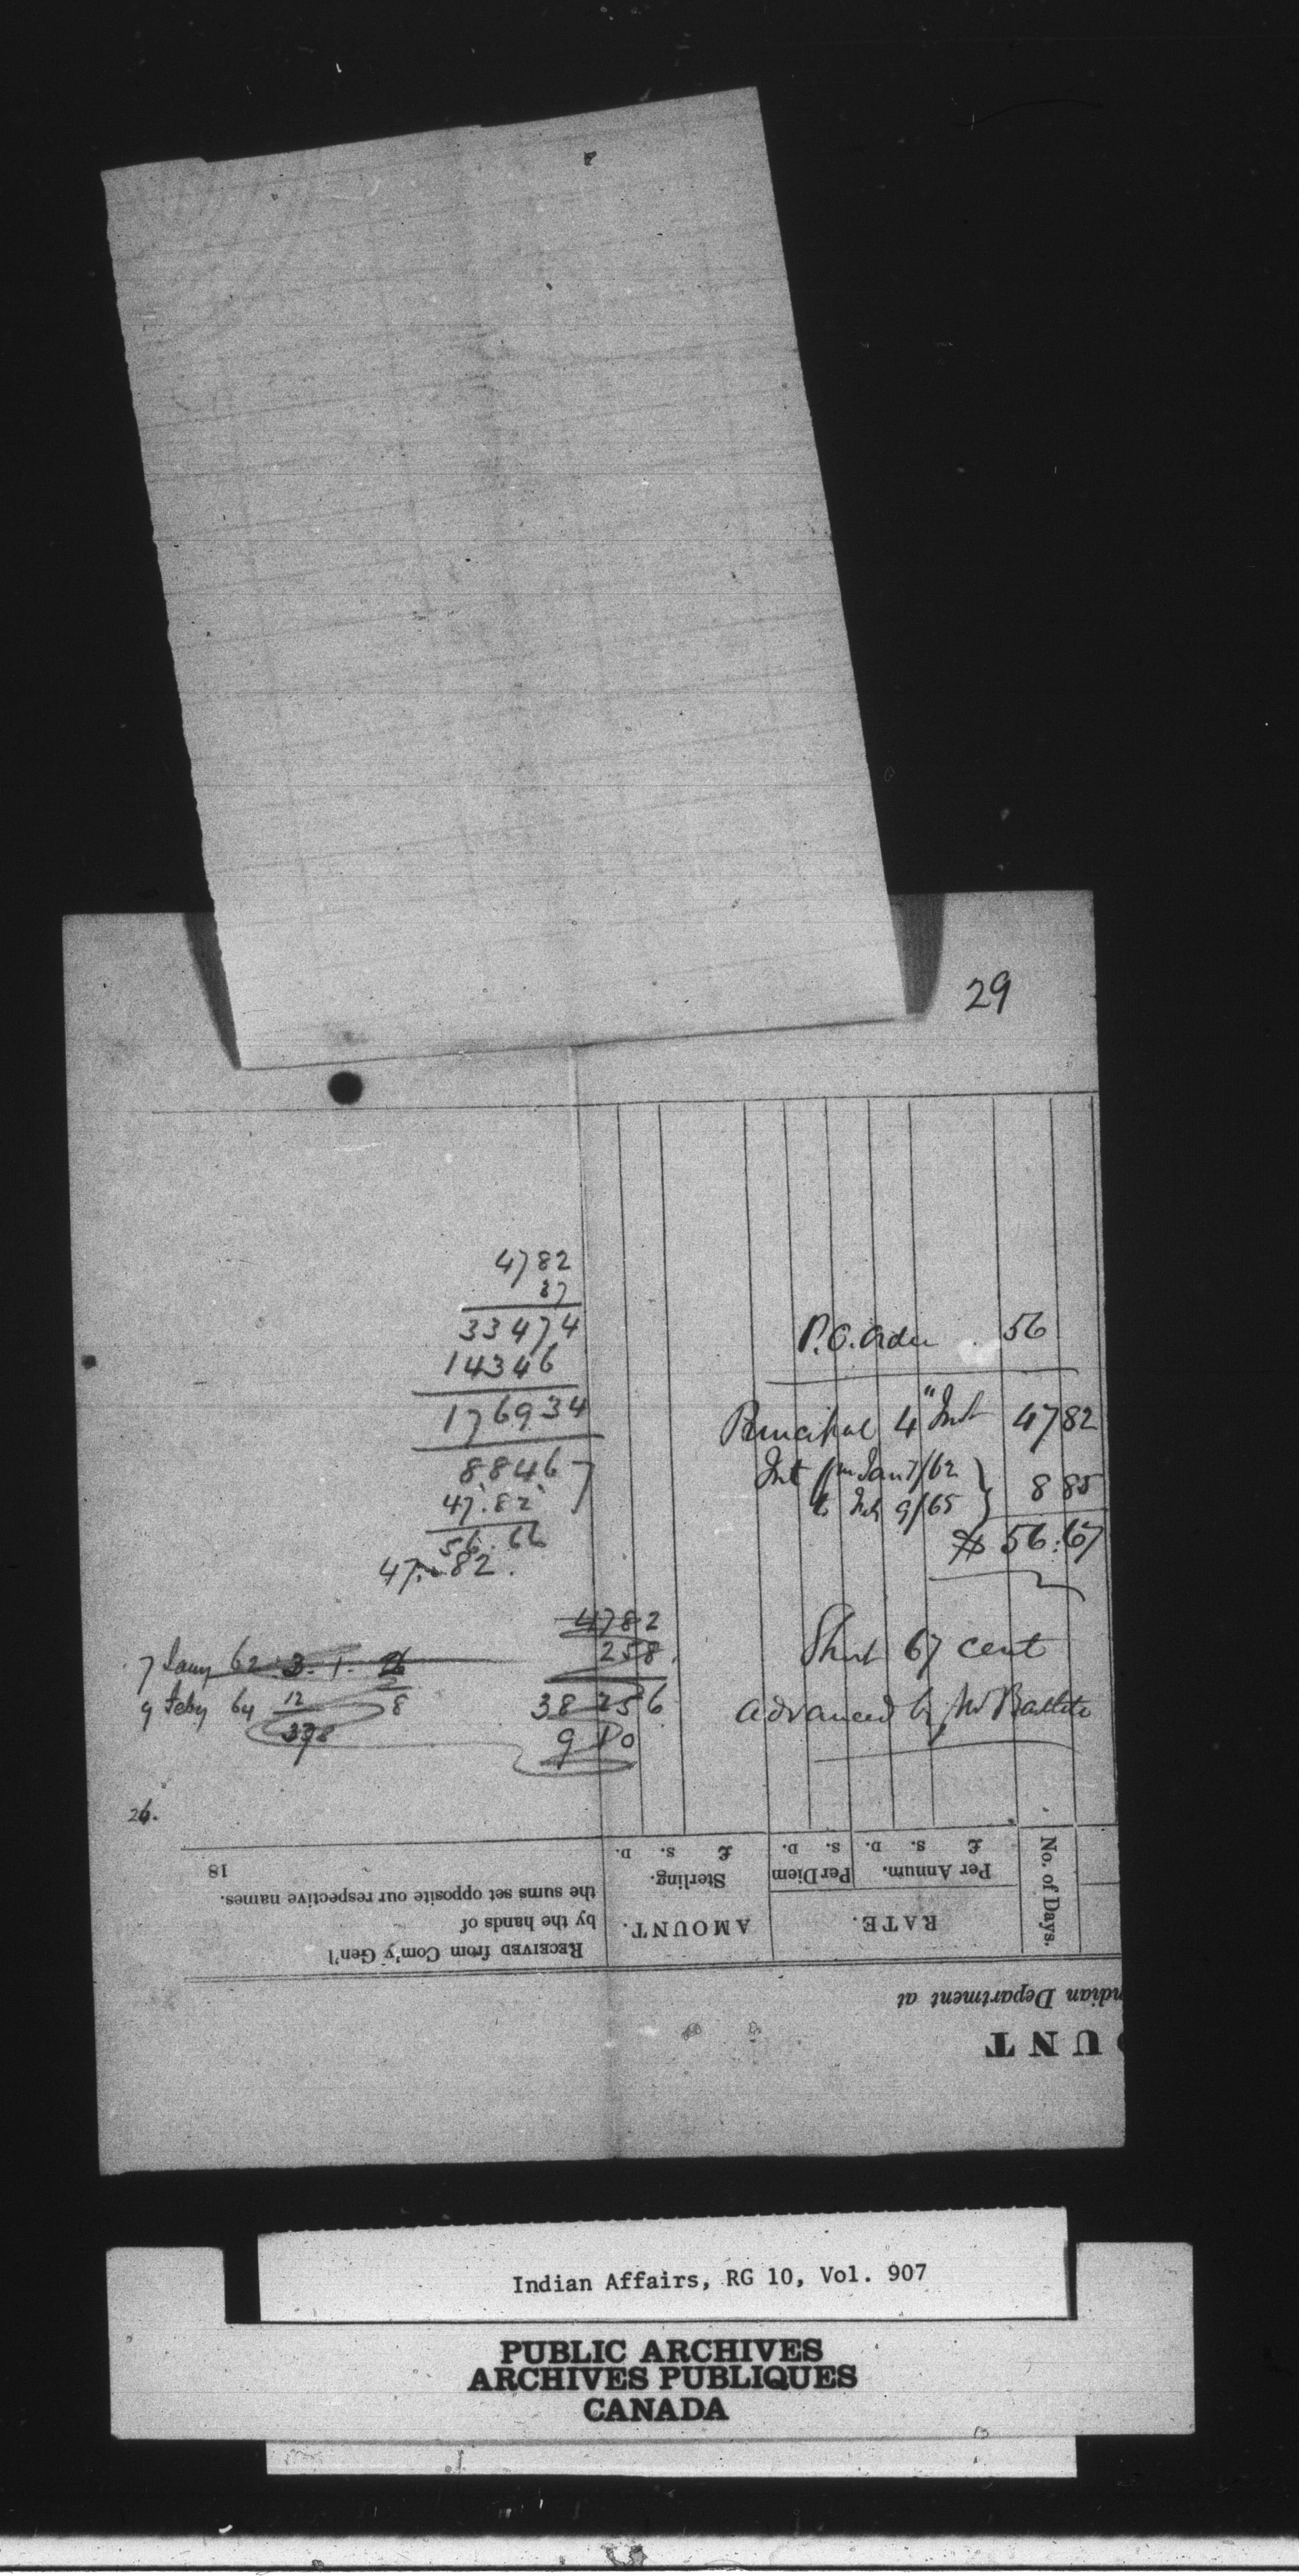 29
4782
37
33474
14346
176934
8846
47.82
56.66
47.82.
P.O. Order 56
Principal 4" Inst 47 82
Int fm Jan 7/62
to Feb 9/65 } 8 85
$ 56:67
Short 67 cent
advanced by Mr Bartlett
4782
258
38256
9 10
7 Jany 62. 3. 1. 26
9 Feby 64 12 8
398
26.
£ S. D.
S. D.
£ S. D.
No. of Days.
18
Per Annum.
Per Diem
Sterling.
the sums set opposite our respective names.
by the hands of
RATE.
AMOUNT.
RECEIVED from Com'y Gen'l
ndian Department at
OUNT
Indian Affairs, RG 10, Vol. 907
PUBLIC ARCHIVES
ARCHIVES PUBLIQUES
CANADA